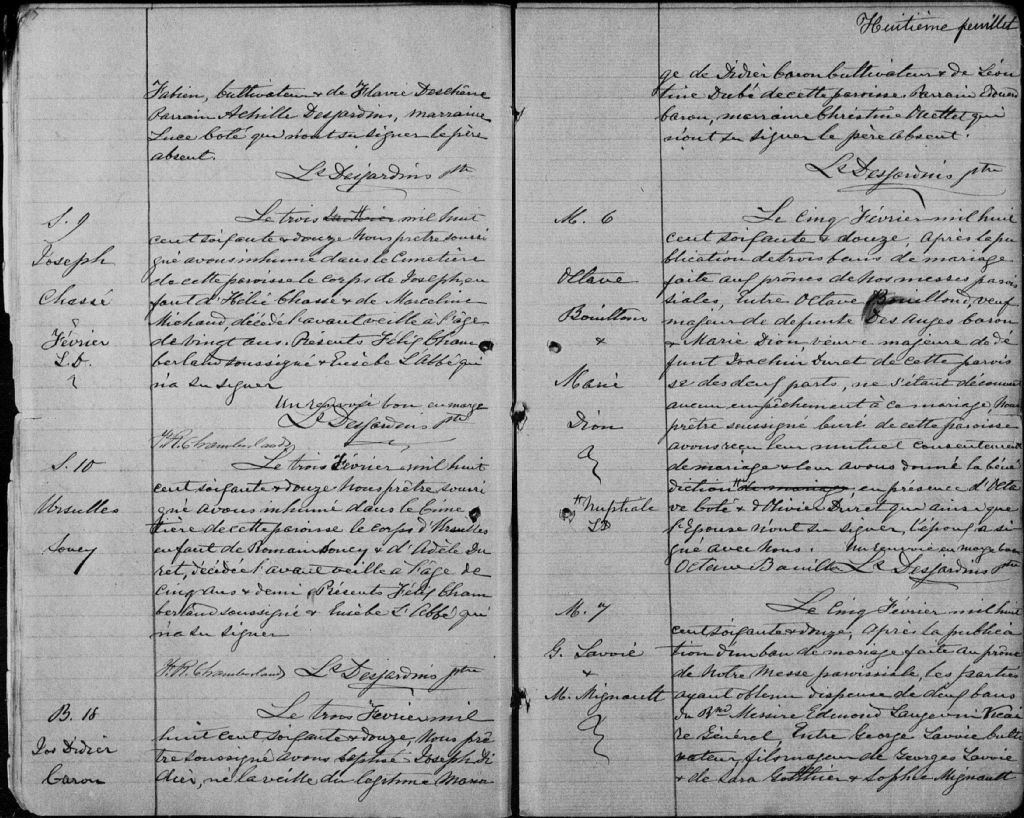 Fabien, Cultivateur & de Flavie Deschène
Parrain Achille Desjardins, marraine
Luce Coté qui n'ont su signer le père
absent.
Ls Desjardins ptre
S. 9
Joseph
Chassé
Février
L.D.
Le trois mil huit
cent soixante & douze Nous prêtre soussi
gné avons inhumé dans le Cimetière
de cette paroisse le corps de Joseph, en
fant d'Hélie Chassé & de Marceline
Michaud, décédé l'avant veille à l'âge
de vingt ans. Présents Félix Cham
berland soussigné & Eusèbe L'Abbé qui
n'a su signer
Un renvoi bon en marge
Ls Desjardins ptre
F.R. Chamberland
S. 10
Ursulles
Soucy
Le trois Février mil huit
cent soixante & douze Nous prêtre, soussi
gné avons inhumé dans le Cime
tière de cette paroisse le corps d'Ursulles
enfant de Romain Soucy & d'Adèle Du
ret, décédée l'avant veille à l'âge de
cinq ans & demi. Présents Félix Cham
berland soussigné & Eusèbe L'Abbé qui
n'a su signer
F.R. Chamberland Ls Desjardins ptre
B. 18
Jos Didier
Caron
Le trois Février mil
huit cent soixante & douze, Nous prê
tre soussigné avons baptisé Joseph Di
dier, né la veille du légitime Maria
Huitième feuillet
ge de Didier Caron Cultivateur & de Léon
tine Dubé de cette paroisse Parrain Edouard
Caron, marraine Christine Ouellet qui
n'ont su signer le père absent.
Ls Desjardins ptre
M. 6
Octave
Bouillon
&
Marie
Dion
# Nuptiale
LD
Le Cinq Février mil huit
cent soixante & douze, Après la pu
blication de trois bans de mariage
faite aux prônes de nos messes parois
siales, Entre Octave Bouillon, veuf
majeur de defunte Des Anges Caron
& Marie Dion veuve majeure de dé
funt Joachim Duret de cette parois
se des deux parts, ne s'étant découvert
aucun empêchement à ce mariage, Nous
prêtre soussigné Curé de cette paroisse
avons reçu leur mutuel consentement
de mariage & leur avons donné la béné
diction # de mariage en présence d'Octa
ve Coté & d'Olivier Duret qui ainsi que
l'Epouse n'ont su signer, l'époux a si
gné avec Nous. Un renvoi en marge bon
Octave Bouillon Ls Desjardins ptre
M. 7
G. Lavoie
&
M. Mignault
Le Cinq Février mil huit
cent soixante & douze, Après la publica
tion d'un ban de mariage faite au prône
de Notre Messe paroissiale, les parties
ayant obtenu dispense de deux bans
du Rmd Messire Edmond Langevin Vicai
re Général, Entre George Lavoie culti
vateur fils majeur de Georges Lavoie
& de Sara Gotthier & Sophie Mignault